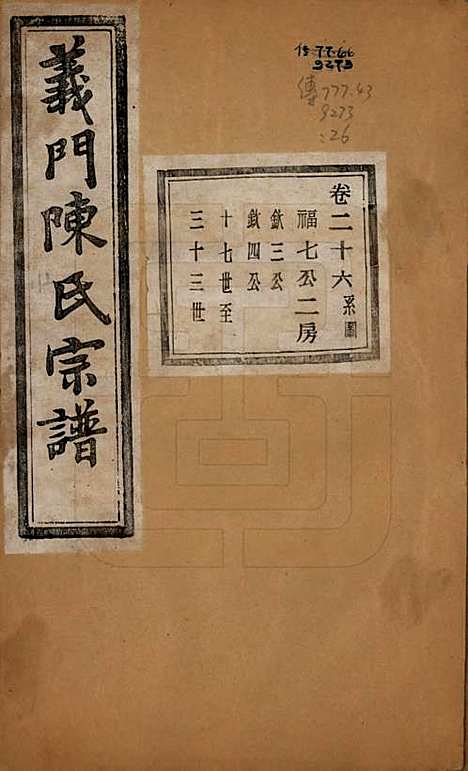 義門陳氏宗譜
卷二十六系圖
福七公二房
欽三公
欽四公
十七世至
三十三世
傳777.43
9273
:26